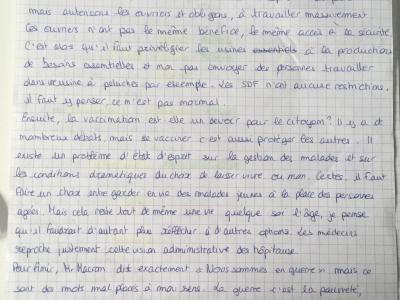 mais autorisons les ouvriers et obligons, à travailler massivement
Ces ouvriers n'ont pas le même bénéfice, le même accès à la sécurité
C'est alors qu'il faut privilégier les usines essentiels à la production
de besoins essentielles et non pas envoyer des personnes travailler
dans usine à peluches par exemple. Les SDF n'ont aucune restriction,
il faut y penser, ce n'est pas normal.
Ensuite, la vaccination est elle un devoir pour le citoyen? Il y a de
nombreux débats mais se vacciner c'est aussi protéger les autres. Il
existe un problème d'état d'esprit sur la gestion des malades et sur
les conditions dramatiques du choix de laisser vivre ou non. Certes, il faut
faire un choix entre garder en vie des malades jeunes à la place des personnes
agées. Mais cela reste tout de même une vie quelque soit l'âge, je pense
qu'il faudrait d'autant plus réfléchir à d'autres options. Les médecins
reproche justement cette vision administrative des hôpitaux.
Pour finir, Mr Macron dit exactement « Nous sommes en guerre » mais ce
sont des mots mal placés à mon sens. La guerre c'est la pauvreté,